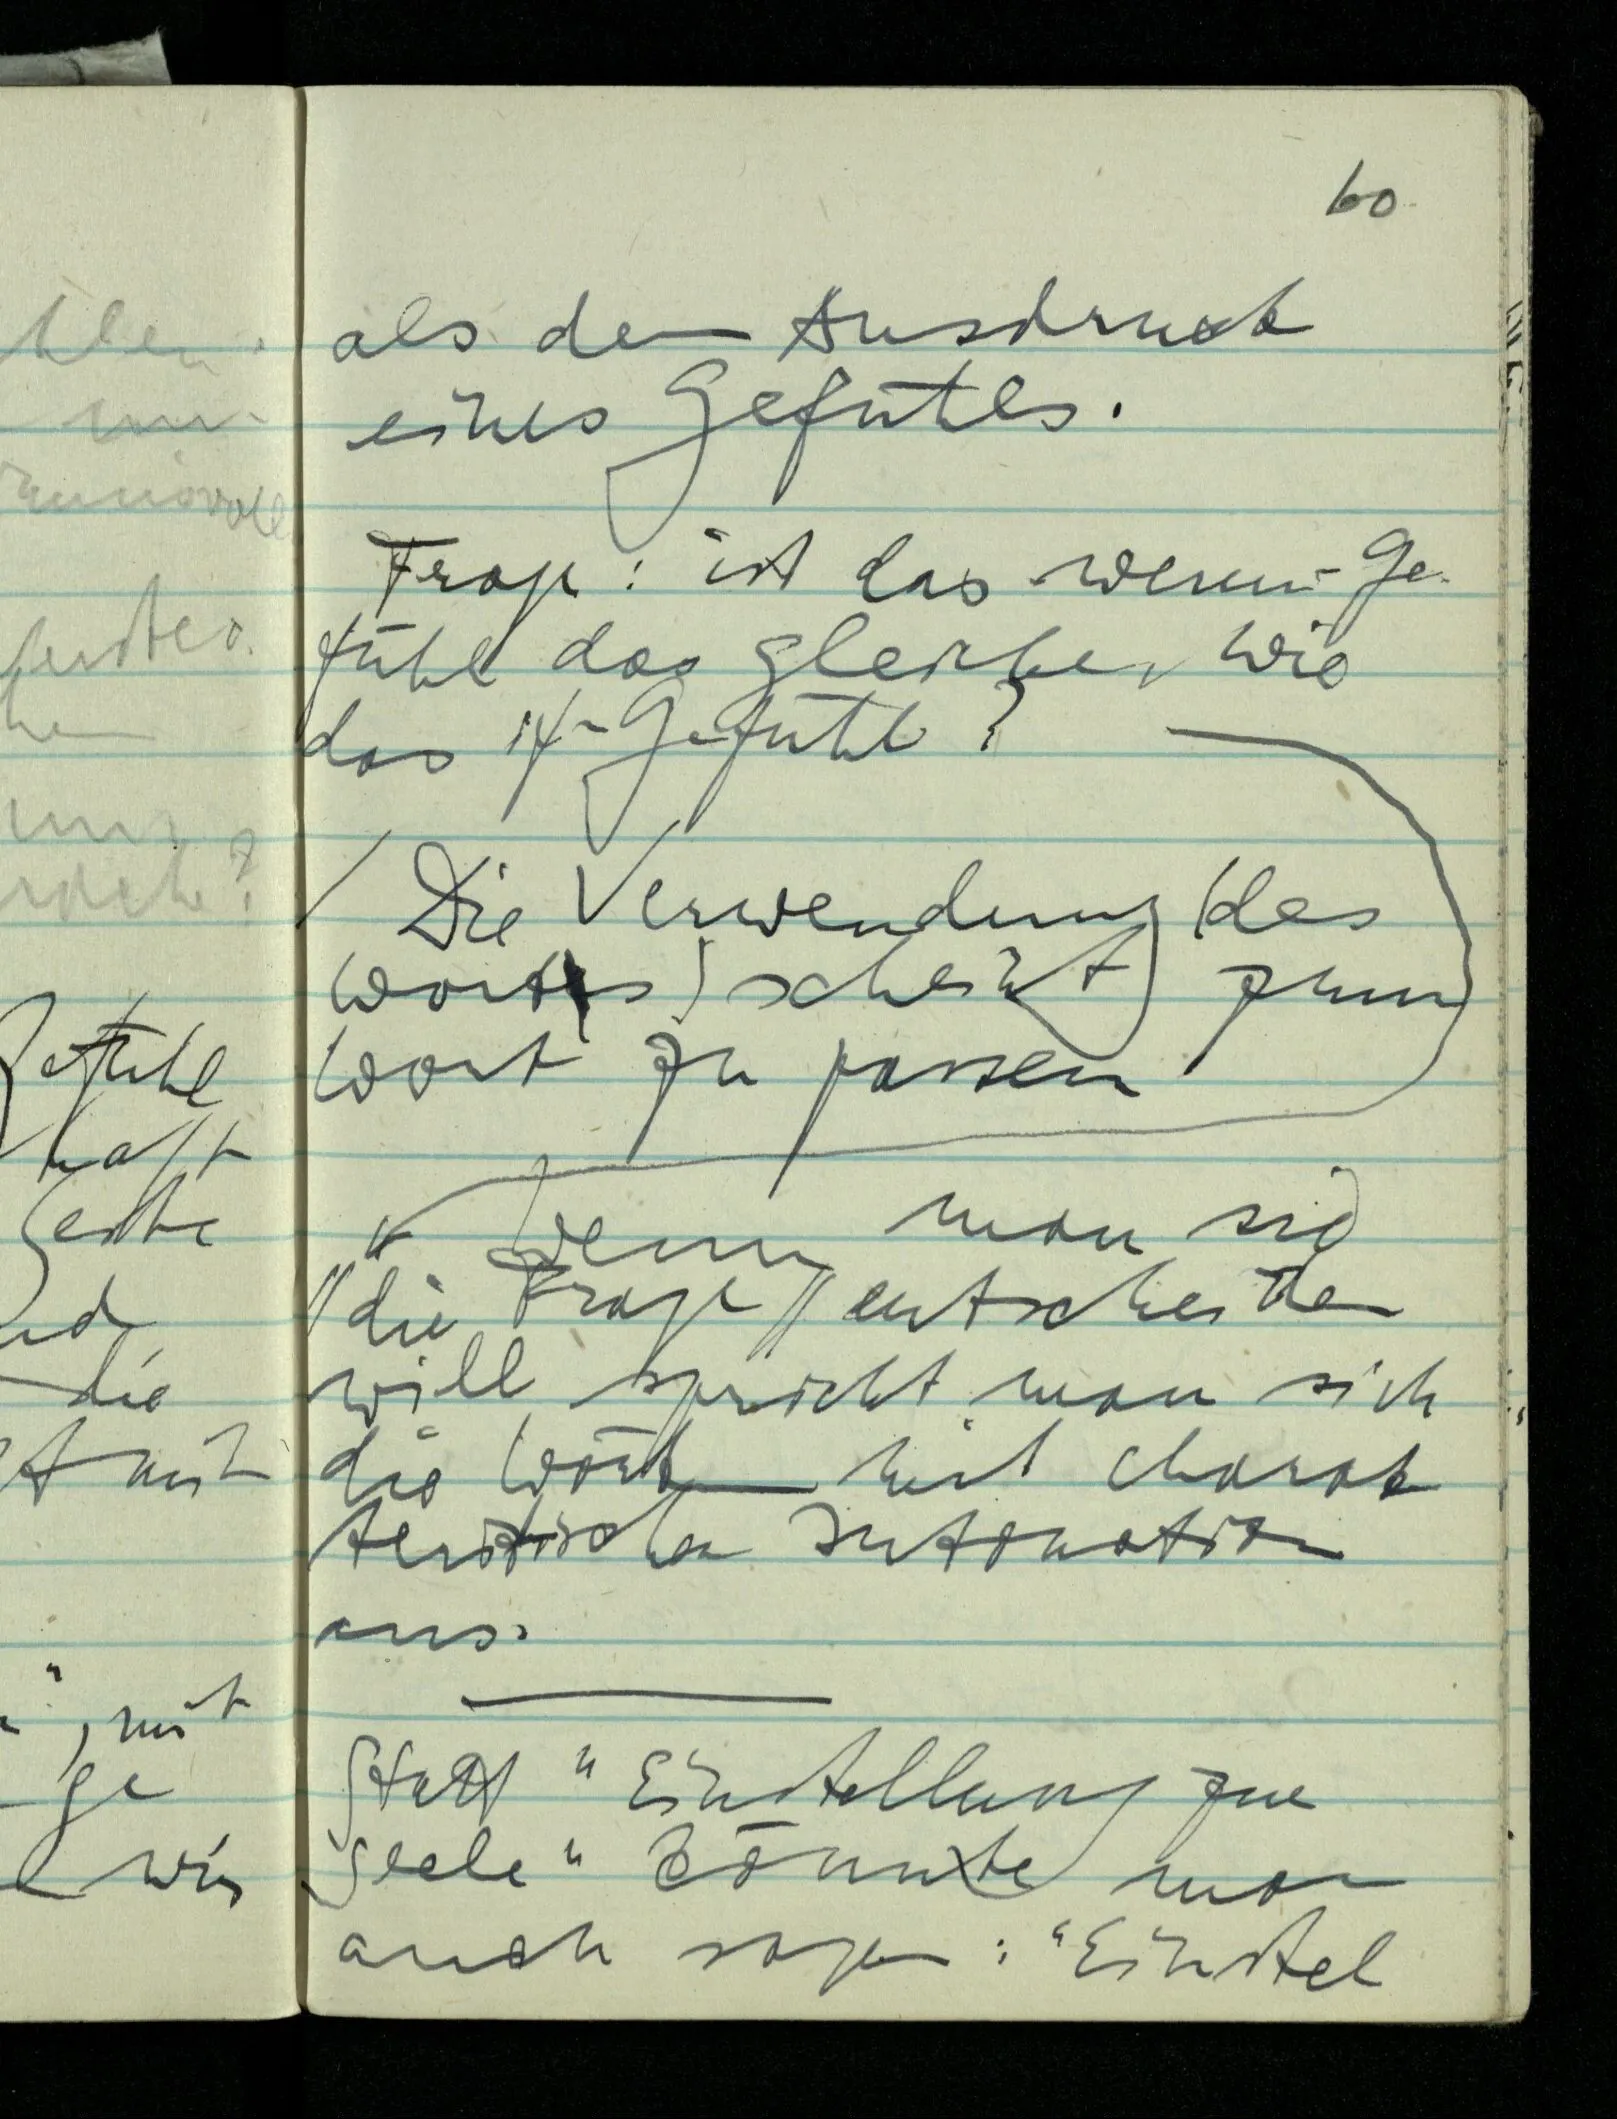 60
als den Ausdruck
eines Gefühls.
Frage: ist das wenn-Ge-
fühl das gleiche, wie
das if-Gefühl?
/ Die Verwendung (des
Wortes) scheint zum
Wort zu passen
Wenn man sich
// die Frage // entscheiden
will spricht man sich
die Wörter mit charak
teristischer Intonation
aus.
Statt "Einstellung zur
Seele" könnte man
auch sagen: "Einstel
Gefühl
haft
Seite
und
die
mit
", mit
ge
wir